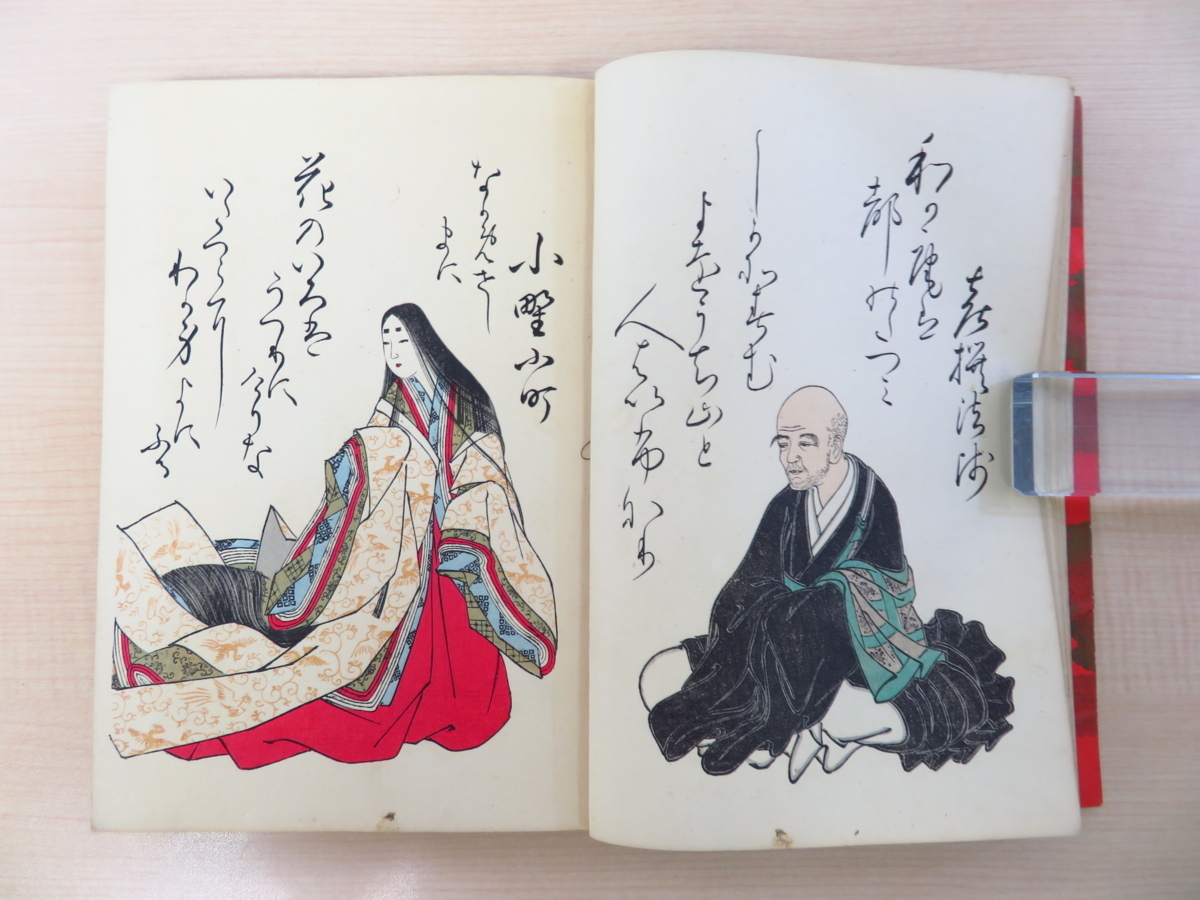 喜撰法師
和か庵は
都のたつミ
しかそすむ
よをうち山と
人はいふなり
小野小町
花のいろは
うつりに
けりな
いたつらに
わか身よに
ふる
なかめせし
まに